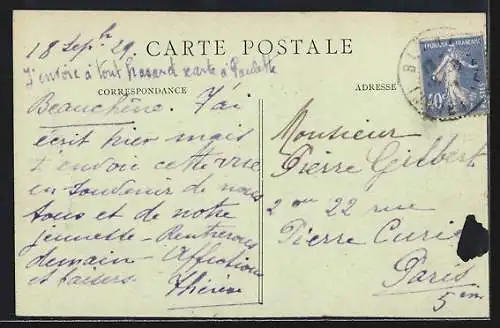 18 Sept 29.
CARTE POSTALE
J'envoie à tout hasard carte à Paulette
CORRESPONDANCE
ADRESSE
Beauchêne. J'ai
écrit hier mais
t'envoie cette vue
en souvenir de nous
tous et de notre
jeunesse - Rentrerons
demain - Affections
et baisers.
Thérèse
Monsieur
Pierre Gilbert
22 rue
Pierre Curie
Paris
5em
POSTES FRANÇAISE
40c